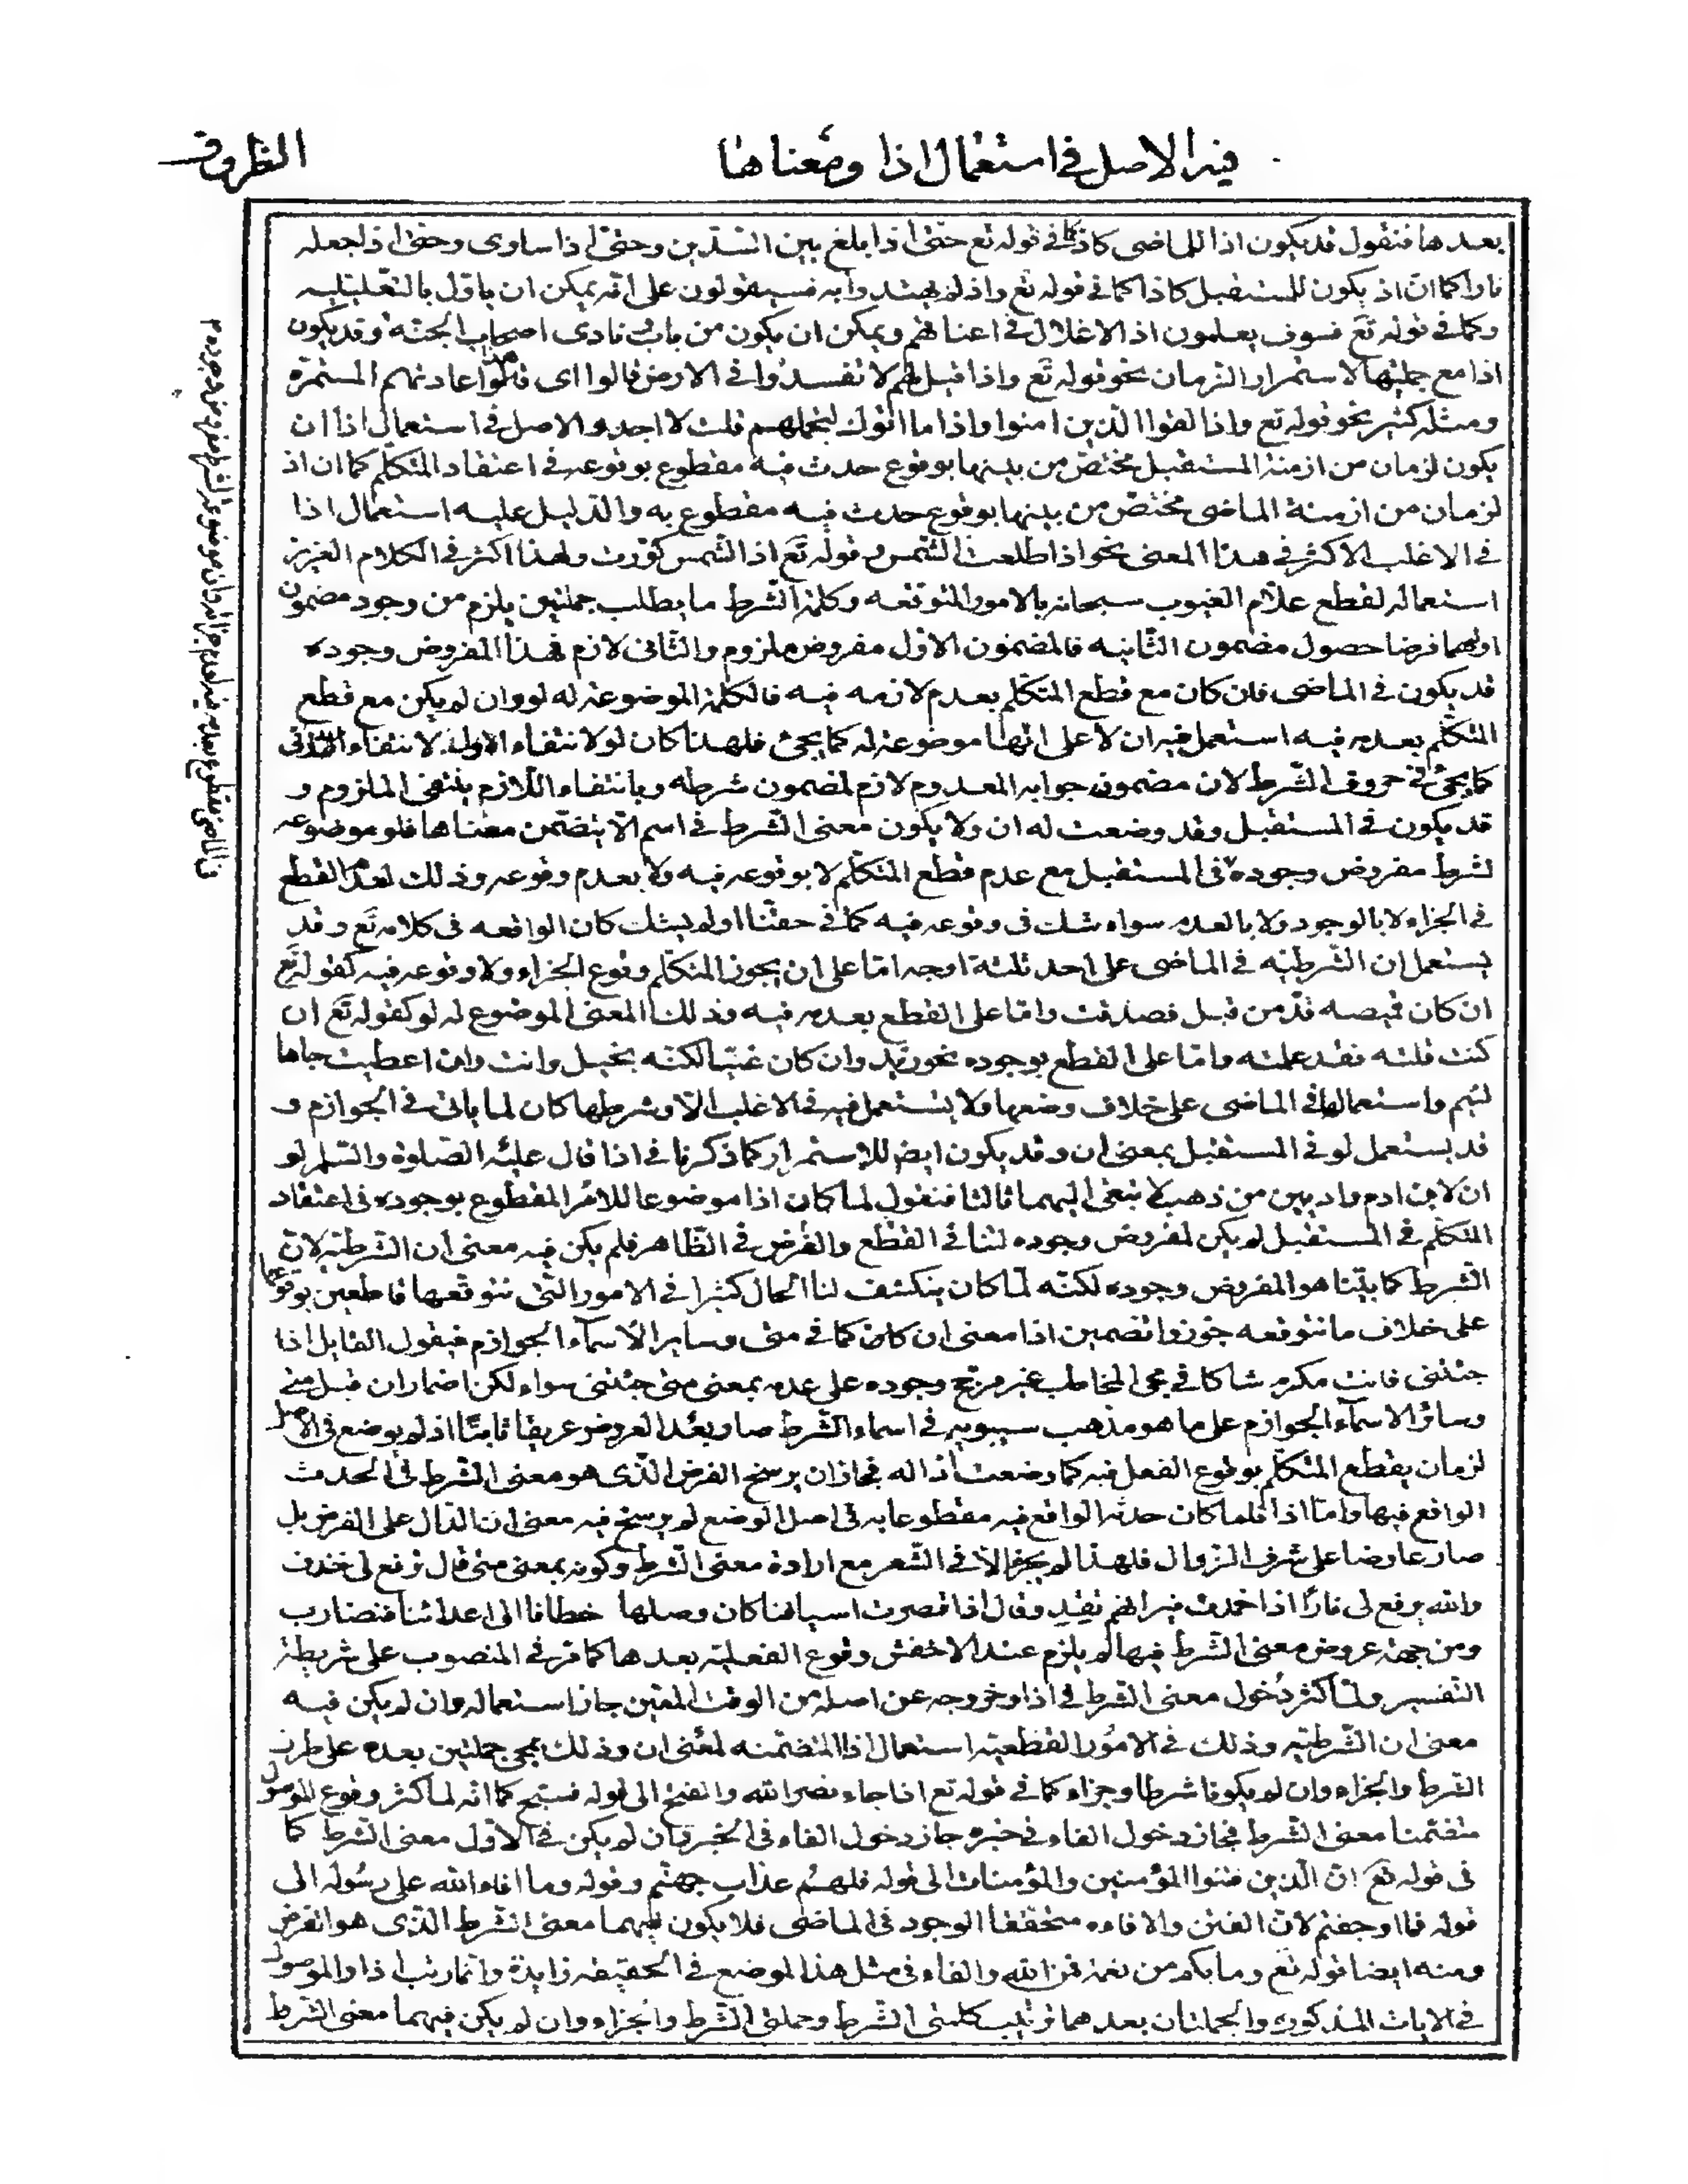 فيه الاصل في استعمال اذا ومعناها
الظروف
بعدها فنقول قد يكون اذا للماضى كاذ كما في قوله تع حتى اذا بلغ بين السدين وحتى اذا ساوى وحتى اذا جعله
نارا كما ان اذ يكون للمستقبل كاذا كما في قوله تع واذ لم يهتدوا به فسيقولون على انه يمكن ان ياول بالتعليليه
وكما في قوله تع فسوف يعلمون اذ الاغلال في اعناقهم ويمكن ان يكون من باب نادى اصحاب الجنة وقد يكون
اذا مع جملتها لاستمرار الزمان نحو قوله تع واذا قيل لهم لا تفسدوا في الارض قالوا اى هذا عادتهم المستمرة
ومثله كثير نحو قوله تع واذا لقوا الذين امنوا واذا ما اتوك لتحملهم قلت لا اجد والاصل في استعمال اذا ان
يكون لزمان من ازمنة المستقبل مختص من بينها بوقوع حدث فيه مقطوع بوقوعه في اعتقاد المتكلم كما ان اذ
لزمان من ازمنة الماضى مختص من بينها بوقوع حدث فيه مقطوع به والدليل عليه استعمال اذا
في الاغلب الاكثر في هذا المعنى نحو اذا طلعت الشمس وقوله تع اذا الشمس كورت ولهذا اكثر في الكلام العزيز
استعماله لقطع علام الغيوب سبحانه بالامور المتوقعه وكلمة الشرط ما يطلب جملتين يلزم من وجود مضمون
اولهما فرضا حصول مضمون الثانيه فالمضمون الاول مفروض ملزوم والثانى لازم فهذا المفروض وجوده
قد يكون في الماضى فان كان مع قطع المتكلم بعدم لازمه فيه فالكلمة الموضوعة له لو وان لم يكن مع قطع
المتكلم بعدمه فيه استعمل فيه ان لا على انها موضوعة له كما يجئ فلهذا كان لو لانتفاء الاول لانتفاء الثانى
كما يجئ في حروف الشرط لان مضمون جوابه المعدوم لازم لمضمون شرطه وبانتفاء اللازم ينتفى الملزوم و
قد يكون في المستقبل وقد وضعت له ان ولا يكون معنى الشرط في اسم الا بتضمن معناها فلو موضوعه
لشرط مفروض وجوده في المستقبل مع عدم قطع المتكلم لا بوقوعه فيه ولا بعدم وقوعه وذلك لعدم القطع
في الجزاء لا بالوجود ولا بالعدم سواء شك في وقوعه فيه كما في حقنا او لم يشك كان الواقعه في كلامه تع وقد
يستعمل ان الشرطيه في الماضى على احد ثلثة اوجه اما على ان يجوز المتكلم وقوع الجزاء ولا وقوعه فيه كقوله تع
ان كان قميصه قد من قبل فصدقت واما على القطع بعدمه فيه وذلك المعنى الموضوع له لو كقوله تع ان
كنت قلته فقد علمته واما على القطع بوجوده نحو زيد وان كان غنيا لكنه بخيل وانت وان اعطيت جاها
لئيم واستعمالها في الماضى على خلاف وضعها ولا يستعمل فيه في الاغلب الا وشرطها كان لما ياتى في الجوازم و
قد يستعمل لو في المستقبل بمعنى ان وقد يكون ايض للاستمرار كما ذكرنا في اذا قال عليه الصلوة والسلم لو
ان لابن ادم واديين من ذهب لابتغى اليهما ثالثا فنقول لما كان اذا موضوعا للامر المقطوع بوجوده في اعتقاد
المتكلم في المستقبل لم يكن لمفروض وجوده لتنافى القطع والفرض في الظاهر فلم يكن فيه معنى ان الشرطية لان
الشرط كما بينا هو المفروض وجوده لكنه لما كان ينكشف لنا الحال كثيرا في الامور التى نتوقعها قاطعين بوقوعها
على خلاف ما نتوقعه جوزوا تضمين اذا معنى ان كان كما في متى وساير الاسماء الجوازم فيقول القايل اذا
جئتنى فانت مكرم شاكا في مجى المخاطب غير مرجح وجوده على عدمه بمعنى متى جئتنى سواء لكن اضمار ان قبل متى
وسائر الاسماء الجوازم على ما هو مذهب سيبويه في اسماء الشرط صار بعد العروض عريقا ثابتا اذ لم يوضع في الاصل
لزمان يقطع المتكلم بوقوع الفعل فيه كما وضعت اذا له فجاز ان يرسخ الفرض الذى هو معنى الشرط في الحدث
الواقع فيها واما اذا فلما كان حدثه الواقع فيه مقطوعا به في اصل الوضع لم يرسخ فيه معنى ان الدال على الفرض بل
صار عارضا على شرف الزوال فلهذا لم يجزم الا في الشعر مع ارادة معنى الشرط وكونه بمعنى متى قال ترفع لى خندف
والله يرفع لى نارا اذا خمدت نيرانهم تقد وقال اذا قصرت اسيافنا كان وصلها خطانا الى اعدائنا فنضارب
ومن جهة عروض معنى الشرط فيها لم يلزم عند الاخفش وقوع الفعلية بعدها كما مر في المنصوب على شريطة
التفسير ولما كثر دخول معنى الشرط في اذا وخروجه عن اصله من الوقت المعين جاز استعماله وان لم يكن فيه
معنى ان الشرطيه وذلك في الامور القطعية استعمال اذا المتضمنه لمعنى ان وذلك بمجئ جملتين بعده على طرز
الشرط والجزاء وان لم يكونا شرطا وجزاء كما في قوله تع اذا جاء نصر الله والفتح الى قوله فسبح كما انه لما كثر وقوع الموصول
متضمنا معنى الشرط فجاز دخول الفاء في خبره جاز دخول الفاء في الخبر وان لم يكن في الاول معنى الشرط كما
في قوله تع ان الذين فتنوا المؤمنين والمؤمنات الى قوله فلهم عذاب جهنم وقوله وما افاء الله على رسوله الى
قوله فما اوجفتم لان الفتن والافاءه متحققا الوجود في الماضى فلا يكون فيهما معنى الشرط الذى هو الفرض
ومنه ايضا قوله تع وما بكم من نعمة فمن الله والفاء في مثل هذا الموضع في الحقيقه زايدة وانما رتب اذا والموصول
في الايات المذكوره والجملتان بعدهما ترتيب كلمتى الشرط وجملتى الشرط والجزاء وان لم يكن فيهما معنى الشرط